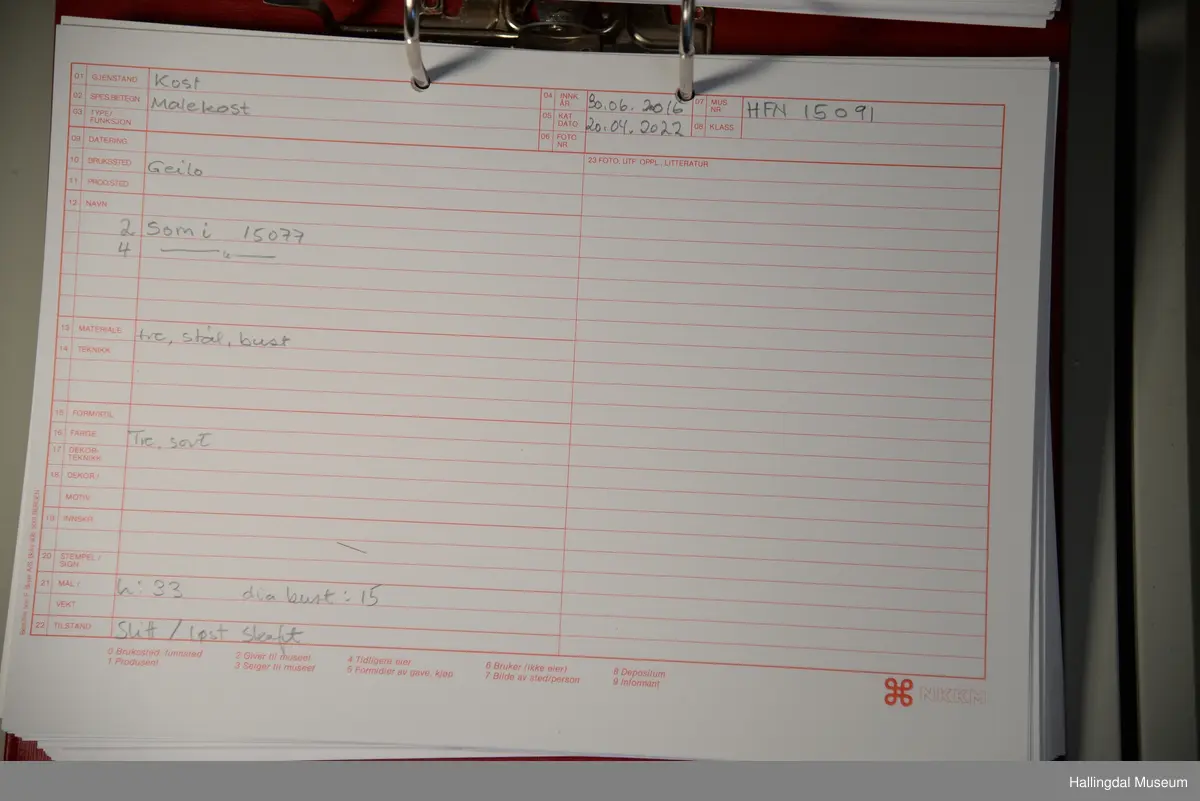 01 GJENSTAND Kost
02 SPES.BETEGN Malekost
03 TYPE/ FUNKSJON
04 INNK. ÅR 30.06. 2016
05 KAT. DATO 20.04.2022
06 FOTO NR.
07 MUS. NR. HFN 15091
08 KLASS.
09 DATERING
10 BRUKSSTED Geilo
11 PROD.STED
12 NAVN
2 Som i 15077
4 —— " ——
13 MATERIALE tre, stål, bust
14 TEKNIKK
15 FORM/STIL
16 FARGE Tre, sort
17 DEKOR- TEKNIKK
18 DEKOR /
MOTIV
19 INNSKR.
20 STEMPEL / SIGN
21 MÅL / h: 33 dia bust: 15
VEKT
22 TILSTAND Slitt / løst skaft
23 FOTO, UTF. OPPL., LITTERATUR
0 Brukssted, funnsted
1 Produsent
2 Giver til museet
3 Selger til museet
4 Tidligere eier
5 Formidler av gave, kjøp
6 Bruker (ikke eier)
7 Bilde av sted/person
8 Depositum
9 Informant
NKKM
Hallingdal Museum